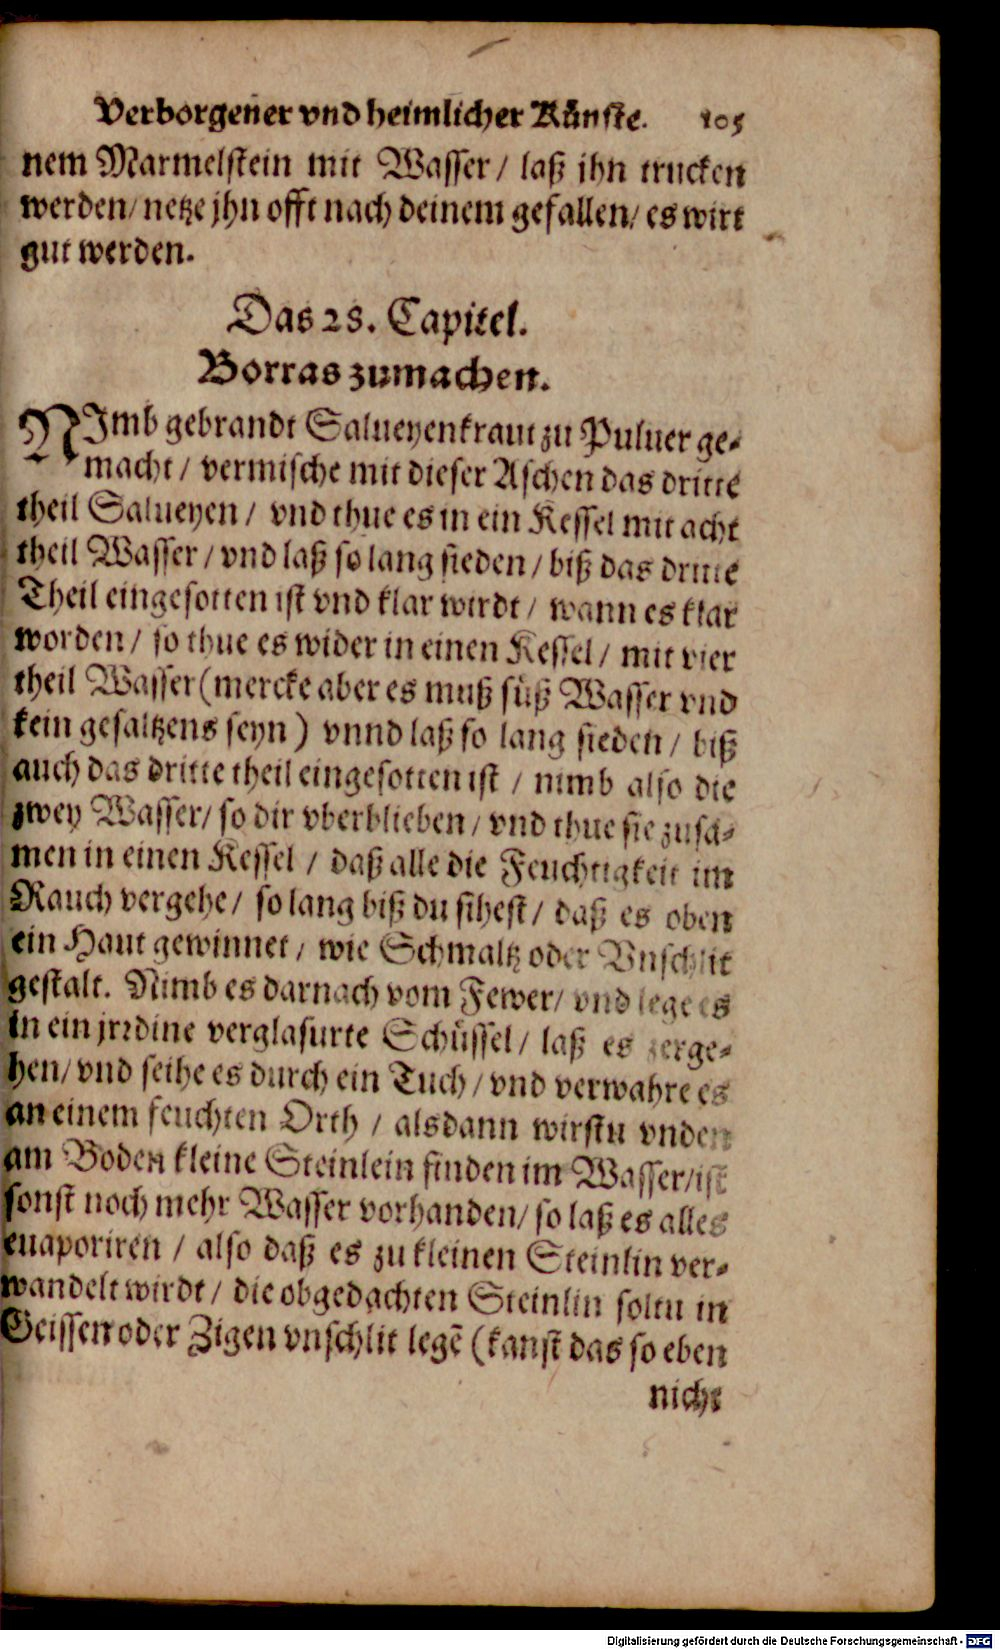 Verborgener vnd heimlicher Künste. 105
nem Marmelstein mit Wasser / laß ihn trucken
werden / netze jhn offt nach deinem gefallen / es wirt
gut werden.
Das 28. Capitel.
Borras zumachen.
NJmb gebrandt Salueyenkraut zu Puluer ge-
macht / vermische mit dieser Aschen das dritte
theil Salueyen / vnd thue es in ein Kessel mit acht
theil Wasser / vnd laß so lang sieden / biß das dritte
Theil eingesotten ist vnd klar wirdt / wann es klar
worden / so thue es wider in einen Kessel / mit vier
theil Wasser (mercke aber es muß süß Wasser vnd
kein gesaltzens seyn) vnnd laß so lang sieden / biß
auch das dritte theil eingesotten ist / nimb also die
zwey Wasser / so dir vberblieben / vnd thue sie zusa-
men in einen Kessel / daß alle die Feuchtigkeit im
Rauch vergehe / so lang biß du sihest / daß es oben
ein Haut gewinnet / wie Schmaltz oder Vnschlit
gestalt. Nimb es darnach vom Fewer / vnd lege es
in ein jrrdine verglasurte Schüssel / laß es zerge-
hen / vnd seihe es durch ein Tuch / vnd verwahre es
an einem feuchten Orth / alsdann wirstu vnden
am Boden kleine Steinlein finden im Wasser / ist
sonst noch mehr Wasser vorhanden / so laß es alles
euaporiren / also daß es zu kleinen Steinlin ver-
wandelt wirdt / die obgedachten Steinlin soltu in
Geissen oder Zigen vnschlit legẽ (kanst das so eben
nicht
Digitalisierung gefördert durch die Deutsche Forschungsgemeinschaft - DFG